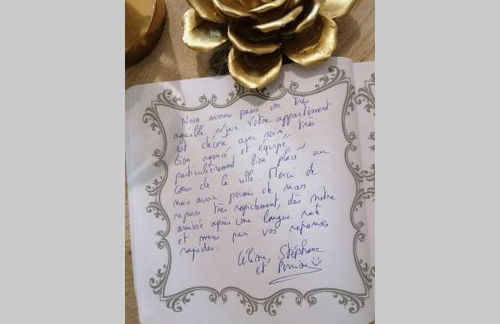 Nous avons passé un très
agréable séjour. Votre appartement
est décoré avec soin, très
bien agencé et équipé,
particulièrement bien placé au
cœur de la ville. Merci de
nous avoir permis de nous
reposer très rapidement, dès notre
arrivée après une longue route
et merci pour vos réponses
rapides.
Stéphane
et